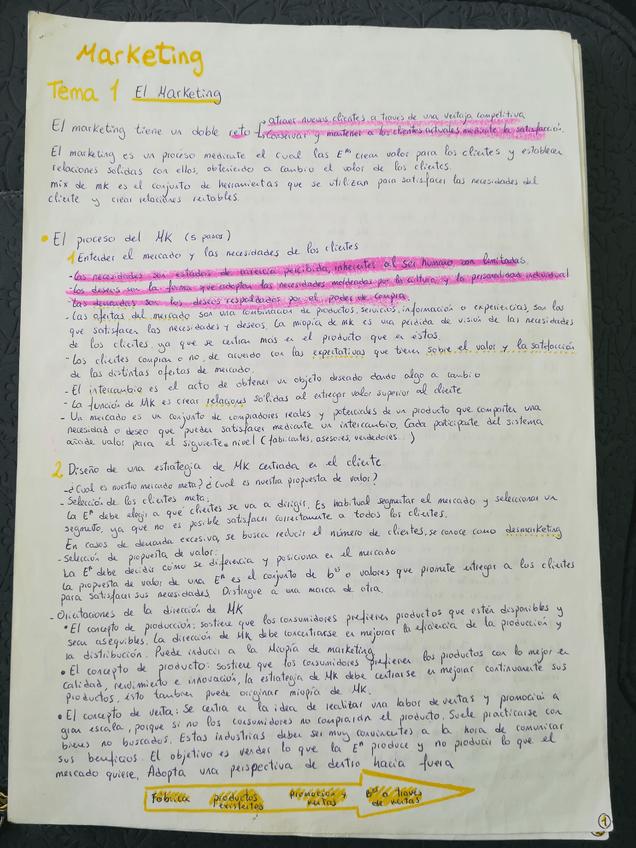 Marketing
Tema 1 El Marketing
El marketing tiene un doble reto atraer nuevos clientes a traves de una ventaja competitiva
conservar y mantener a los clientes actuales mediante la satisfacción.
El marketing es un proceso mediante el cual las Eª crean valor para los clientes y establecen
relaciones solidas con ellos, obteniendo a cambio el valor de los clientes.
mix de mk es el conjunto de herramientas que se utilizan para satisfacer las necesidades del
cliente y crear relaciones rentables.
• El proceso del MK (5 pasos)
1 Entender el mercado y las necesidades de los clientes
- Las necesidades son estados de carencia percibida, inherentes al ser humano, son limitadas.
- Los deseos son la forma que adoptan las necesidades moldeadas por la cultura y la personalidad individual
- Las demandas son los deseos respaldados por el poder de compra.
- Las ofertas del mercado son una combinación de productos, servicios, información o experiencias, son las
que satisfacen las necesidades y deseos. La miopía de mk es una perdida de visión de las necesidades
de los clientes, ya que se centran mas en el producto que en éstas.
- Los clientes compran o no, de acuerdo con las expectativas que tienen sobre el valor y la satisfacción
de las distintas ofertas de mercado.
- El intercambio es el acto de obtener un objeto deseado dando algo a cambio
- La función de MK es crear relacions solidas al entregar valor superior al cliente
- Un mercado es un conjunto de compradores reales y potenciales de un producto que comparten una
necesidad o deseo que pueden satisfacer mediante un intercambio. Cada participante del sistema
añade valor para el siguiente nivel (fabricantes, asesores, vendedores...)
2. Diseño de una estrategia de MK centrada en el cliente.
- ¿Cual es nuestro mercado meta? ¿Cual es nuestra propuesta de valor?
- Selección de los clientes meta:
La Eª debe elegir a qué clientes se va a dirigir. Es habitual segmentar el mercado y seleccionar un
segmento, ya que no es posible satisfacer correctamente a todos los clientes.
En casos de demanda excesiva, se busca reducir el número de clientes, se conoce como desmarketing
- Selección de propuesta de valor:
La Eª debe decidir cómo se diferencia y posiciona en el mercado
La propuesta de valor de una Eª es el conjunto de bºs o valores que promete entregar a los clientes
para satisfacer sus necesidades. Distingue a una marca de otra.
- Orientaciones de la dirección de MK
• El concepto de producción: sostiene que los consumidores prefieren productos que estén disponibles y
sean asequibles. La dirección de MK debe concentrarse en mejorar la eficiencia de la producción y
la distribución. Puede inducir a la Miopía de marketing
• El concepto de producto: sostiene que los consumidores prefieren los productos con lo mejor en
calidad, rendimiento e innovación, la estrategia de MK debe centrarse en mejorar continuamente sus
productos, ésto tambien puede originar miopía de MK.
• El concepto de venta: Se centra en la idea de realizar una labor de ventas y promoción a
gran escala, porque si no los consumidores no comprarán el producto. Suele practicarse con
bienes no buscados. Estas industrias deben ser muy convincentes a la hora de comunicar
sus beneficios. El objetivo es vender lo que la Eª produce y no producir lo que el
mercado quiere. Adopta una perspectiva de dentro hacia fuera
Fábrica productos existentes Promoción y ventas Bºs a través de ventas
1